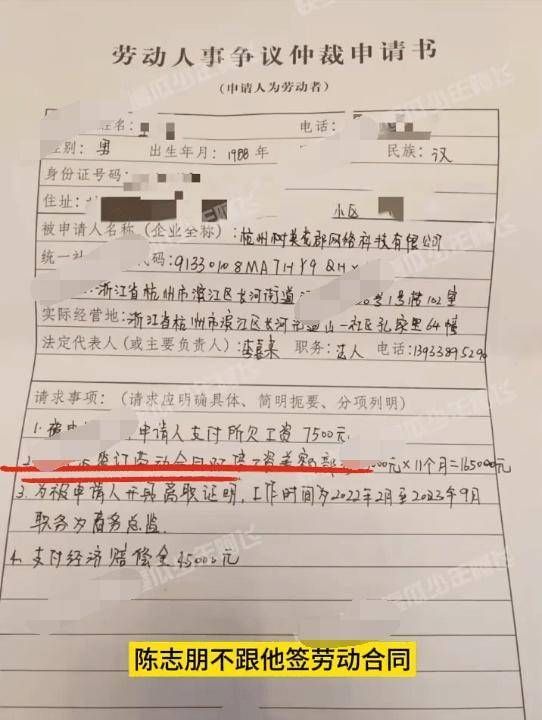 劳动人事争议仲裁申请书
(申请人为劳动者)
姓名: 电话:
性别: 男 出生年月: 1988年 民族: 汉
身份证号码:
住址: 小区
被申请人名称(企业全称): 杭州树英龙郡网络科技有限公司
统一社 代码: 91330108MA7HY9QHX
浙江省杭州市滨江区长河街道 号1号楼102室
实际经营地: 浙江省杭州市滨江区长河 山一社区孔家里64幢
法定代表人(或主要负责人): 职务: 法人 电话:
请求事项: (请求应明确具体、简明扼要、分项列明)
1. 被申 申请人支付所欠工资 7500元
2. 签订劳动合同双倍工资差额部 000元×11个月=165000元
3. 为被申请人开具离职证明,工作时间为2022年2月至2023年9月
职务为商务总监.
4. 支付经济赔偿金45000元
陈志朋不跟他签劳动合同